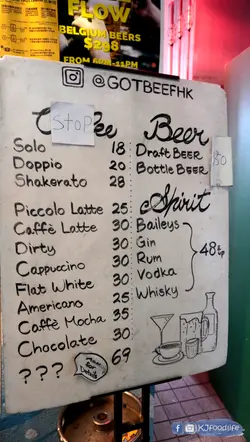 FLOW
BELGIUM BEERS
$298
FROM 6PM-11PM
@GOTBEEFHK
Stop
Solo 18
Doppio 20
Shakerato 28
Piccolo Latte 25
Caffè Latte 30
Dirty 30
Cappuccino 30
Flat White 30
Americano 25
Caffè Mocha 35
Chocolate 30
??? 69
Beer
Draft BEER
Bottle BEER
50
Spirit
Baileys
Gin
Rum
Vodka
Whisky
48up
KJfoodlife